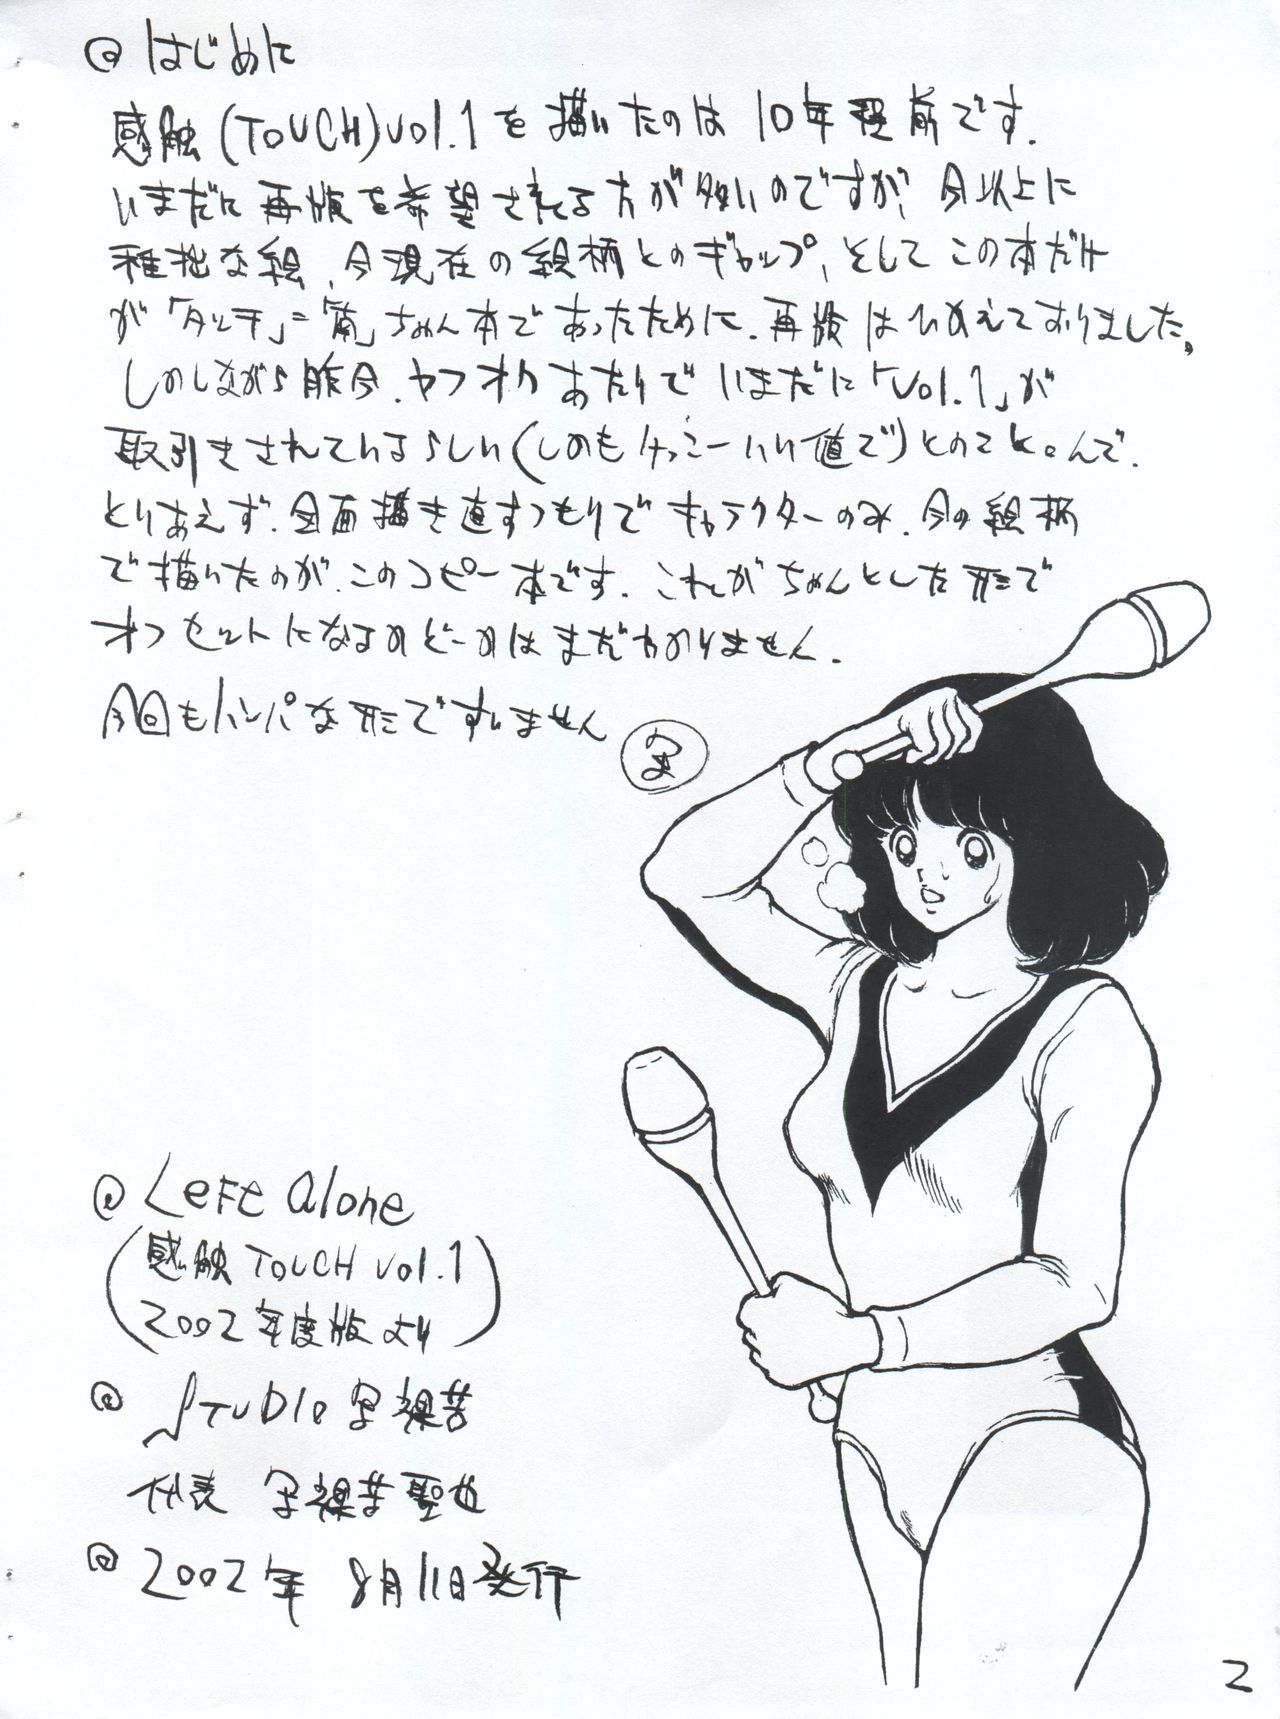 @ はじめに
感触(TOUCH)vol.1を描いたのは10年程前です.
いまだに再版を希望される方が多いのですが,今以上に
稚拙な絵,今現在の絵柄とのギャップ,そしてこの本だけ
が「タッチ」=「南」ちゃん本であったために.再版はひかえておりました。
しかしながら昨今.ヤフオクあたりでいまだに「Vol.1」が
取引きされているらしい(しかもけっこーいい値で)とのこと。んで.
とりあえず.全面描き直すつもりでキャラクターのみ.今の絵柄
で描いたのが.このコピー本です.これがちゃんとした形で
オフセットになるかどーかはまだわかりません.
今回もハンパな形ですいません
@ Left alone
(感触 TOUCH vol.1
2002年度版より)
@ STUDIO 写裸苦
代表 写裸苦聖也
@ 2002年 8月11日発行
2